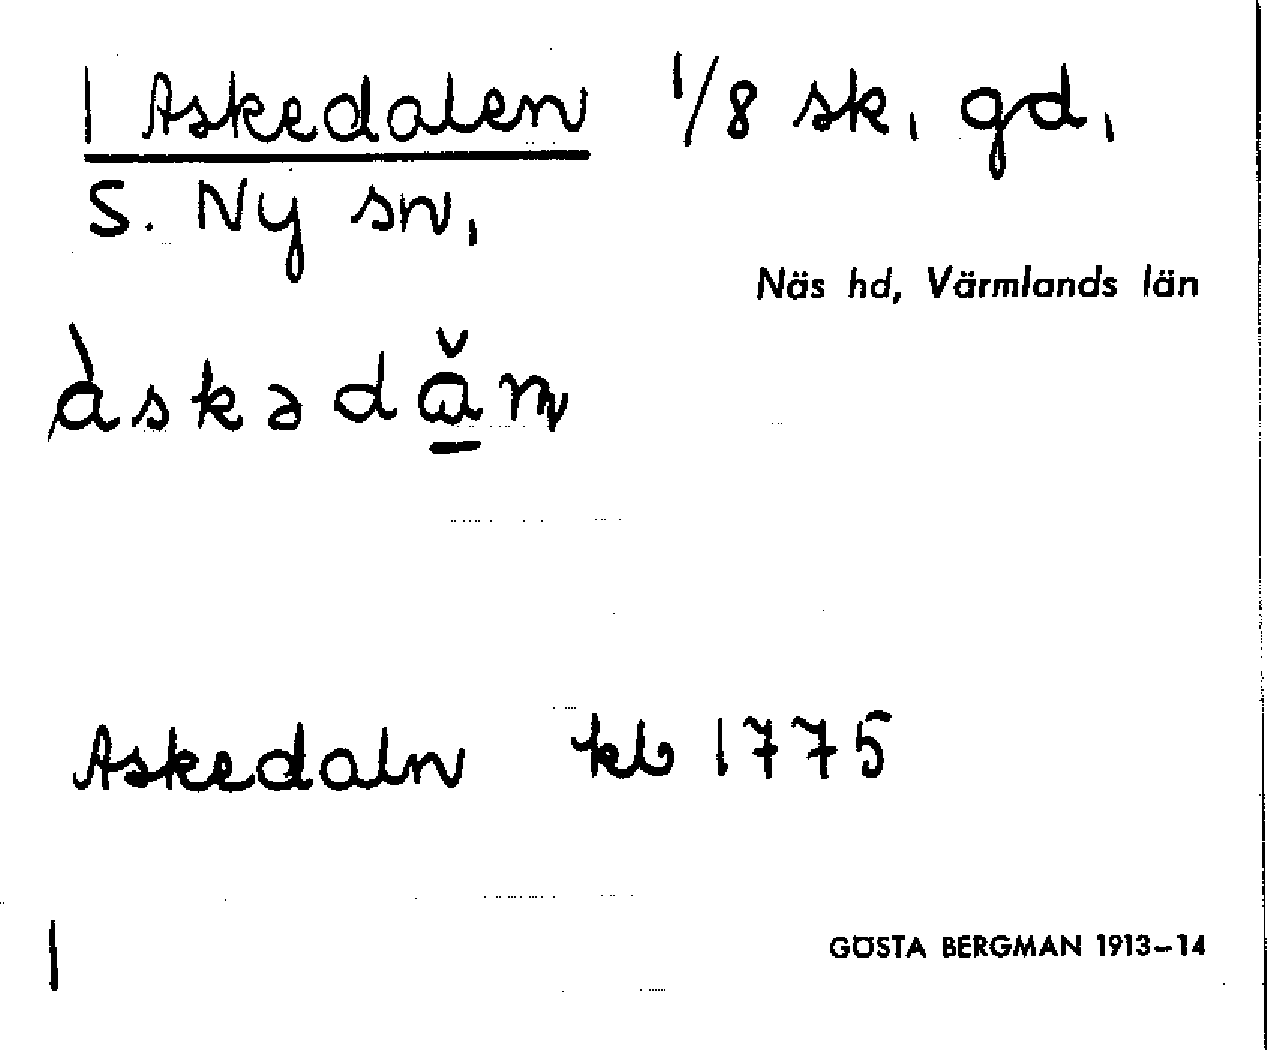 1 Askedalen 1/8 sk. gd.
S. Ny sn.
Näs hd, Värmlands län
àskədăn
Askedaln kb 1775
GÖSTA BERGMAN 1913–14